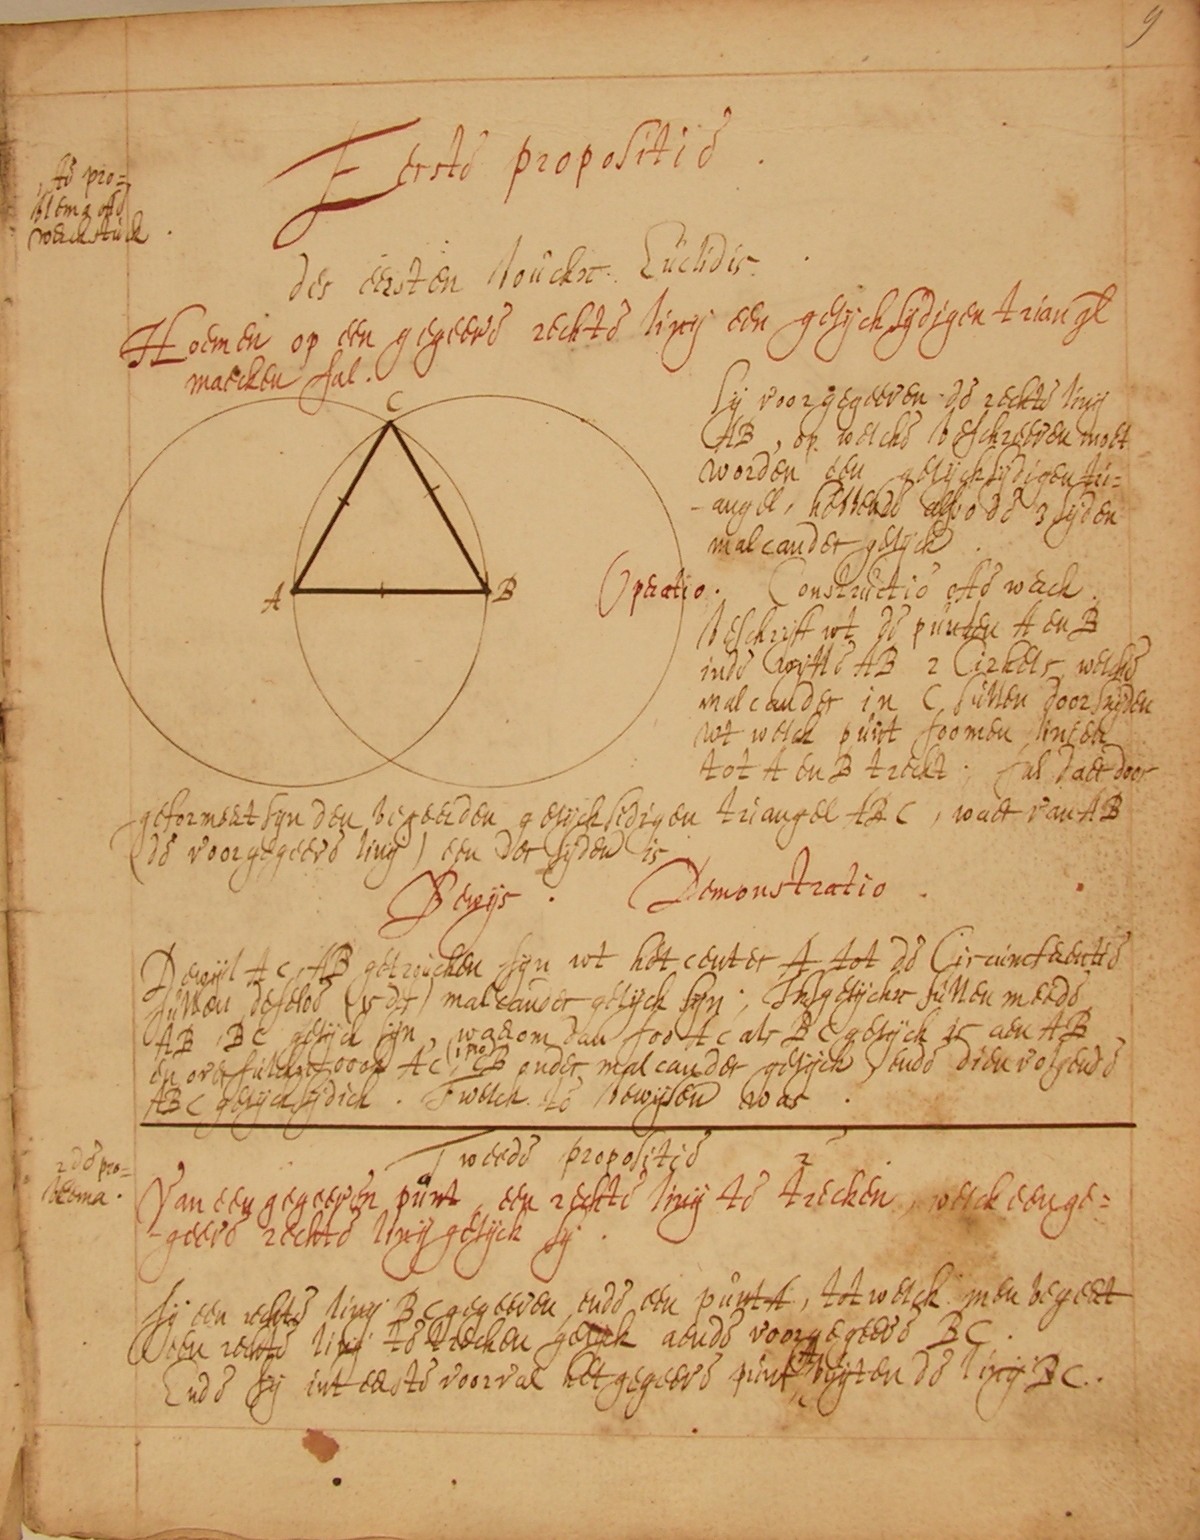 9
Eerste propositie.
1ste pro=
blema ofte
werckstuck.
des eersten boucks Euclidis.
Hoemen op een gegeeve rechte linij een gelijcksijdigen triangel
maecken sal.
C
A
B
Sij voorgegeeven de rechte linij
AB, op welcke beschreeven moet
worden een gelijcksijdigen tri=
-angel, hebbende alsoo de 3 sijden
malcander gelijck.
Operatio. Constructie ofte werck.
Beschrijft wt de punten A en B
inde wijtte AB 2 Cirkels, welcke
malcander in C sullen doorsnijden
wt welck punt soomen linien
tot A en B treckt; sal daer door
geformeert sijn den begeerden gelijcksidigen triangel ABC, waer van AB
(de voorgegeeve linij) een der sijden is
Bewijs. Demonstratio.
Dewijl AC, AB getrocken sijn wt het center A tot de Circumferentie
sullen deselve (15 def) malcander gelijck sijn; Insgelijckx sullen meede
AB BC gelijck sijn, waerom dan soo AC als BC gelijck is aen AB
en over sulckx oock AC, CB onder malcander gelijck ende dienvolgende
ABC gelijcksijdich. Twelck te bewijsen was.
Tweede propositie 2.
2de pro-
blema.
Van een gegeeven punt, een rechte linij te trecken, welck een ge=
-geeve rechte linij gelijck sij.
Sij een rechte linij BC gegeeven, ende een punt A, tot welck men begeert
een rechte linij te trecken gelijck aende voorgegeeve BC.
Ende sij int eerste voorval het gegeeve punt A buijten de linij BC.